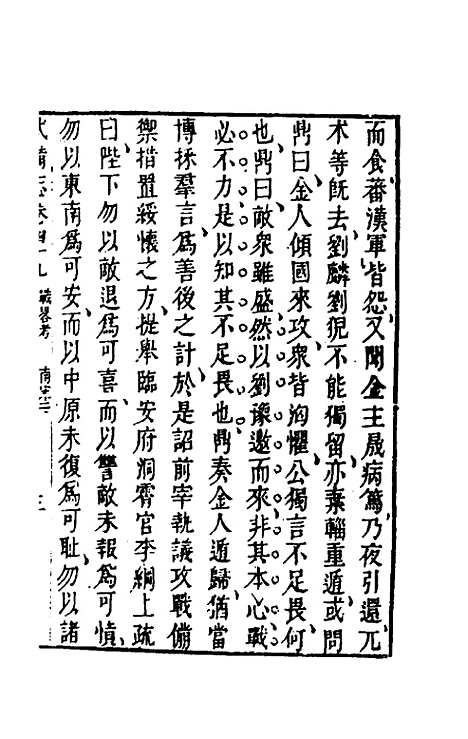 而食蕃漢軍皆怨又聞金主晟病篤乃夜引還兀
术等旣去劉麟劉猊不能獨留亦棄輜重遁或問
鼎曰金人傾國來攻衆皆洶懼公獨言不足畏何
也鼎曰敵衆雖盛然以劉豫邀而來非其本心戰
必不力是以知其不足畏也鼎奏金人遁歸猶當
博採羣言爲善後之計於是詔前宰執議攻戰備
禦措置綏懷之方提舉臨安府洞霄宮李綱上疏
曰陛下勿以敵退爲可喜而以讐敵未報爲可憤
勿以東南爲可安而以中原未復爲可耻勿以諸
武備志卷四十九 戰畧考 南宋二